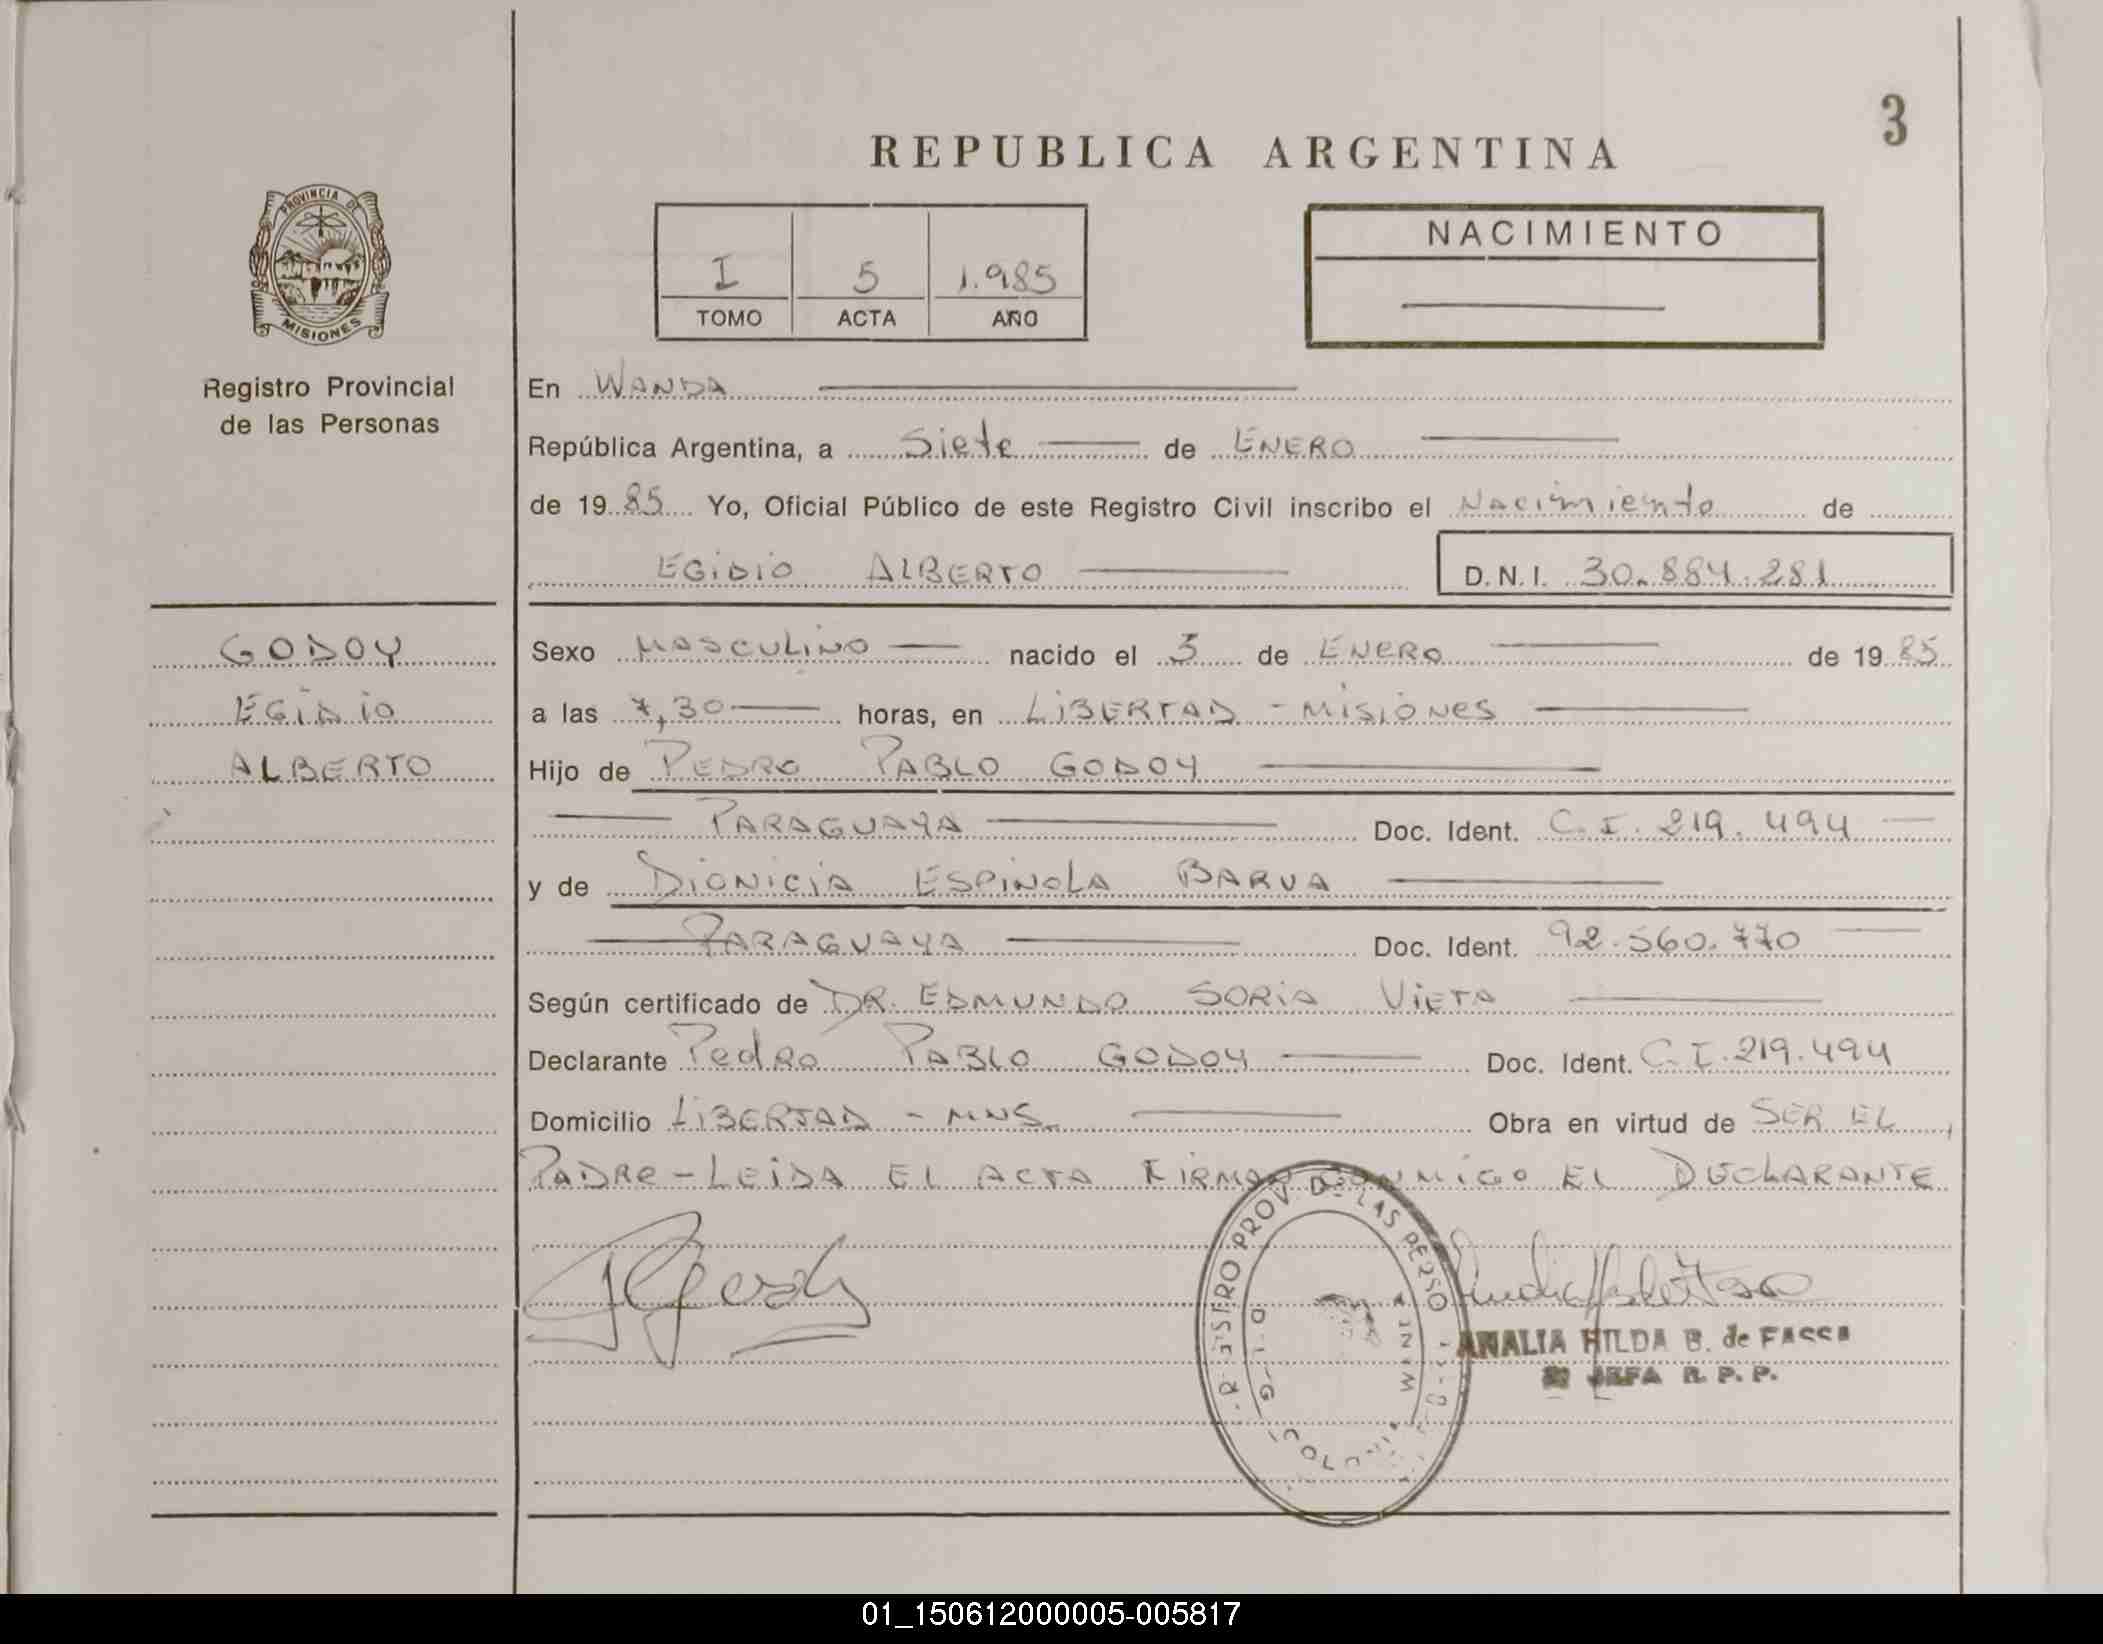 3
REPUBLICA ARGENTINA
PROVINCIA DE
MISIONES
I 5 1.985
TOMO ACTA AÑO
NACIMIENTO
Registro Provincial
de las Personas
En WANDA
República Argentina, a Siete de ENERO
de 19 85 Yo, Oficial Público de este Registro Civil inscribo el Nacimiento de
EGIDIO ALBERTO D. N. I. 30.884.281
GODOY
EGIDIO
ALBERTO
Sexo MASCULINO nacido el 3 de ENERO de 19 85
a las 7,30 horas, en LIBERTAD - MISIONES
Hijo de PEDRO PABLO GODOY
PARAGUAYA Doc. Ident. C. I. 219.494
y de DIONICIA ESPINOLA BARUA
PARAGUAYA Doc. Ident. 92.560.770
Según certificado de DR. EDMUNDO SORIA VIETA
Declarante Pedro PABLO GODOY Doc. Ident. C. I. 219.494
Domicilio LIBERTAD - MNS. Obra en virtud de SER EL
PADRE - LEIDA EL ACTA FIRMAR CONMIGO EL DECLARANTE
REGISTRO PROV. DE LAS PERSO
ANALIA HILDA B. de FASSA
JEFA R. P. P.
01_150612000005-005817